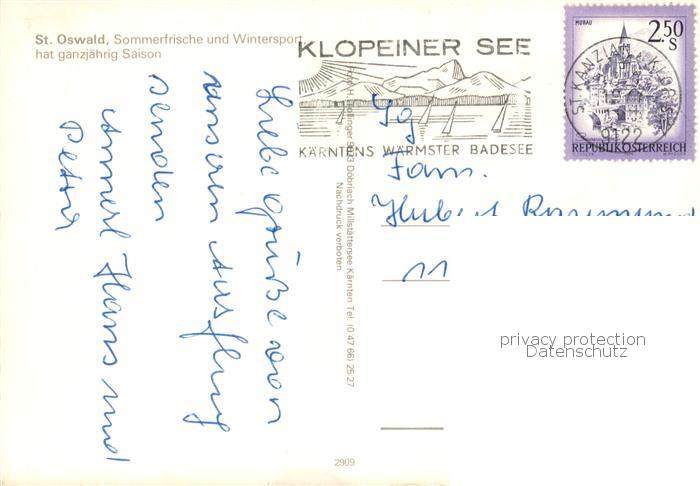 St. Oswald, Sommerfrische und Wintersport
hat ganzjährig Saison
Liebe Grüße von
unserem Ausflug
senden
Annerl Hans und
Petra
9873 Döbriach Millstättersee Kärnten Tel. (0 47 66) 25 27
Nachdruck verboten
KLOPEINER SEE
KÄRNTENS WÄRMSTER BADESEE
MURAU
2.50
S
ST. KANZIAN
9122
REPUBLIK ÖSTERREICH
Fam.
Hubert
11
privacy protection
Datenschutz
2909